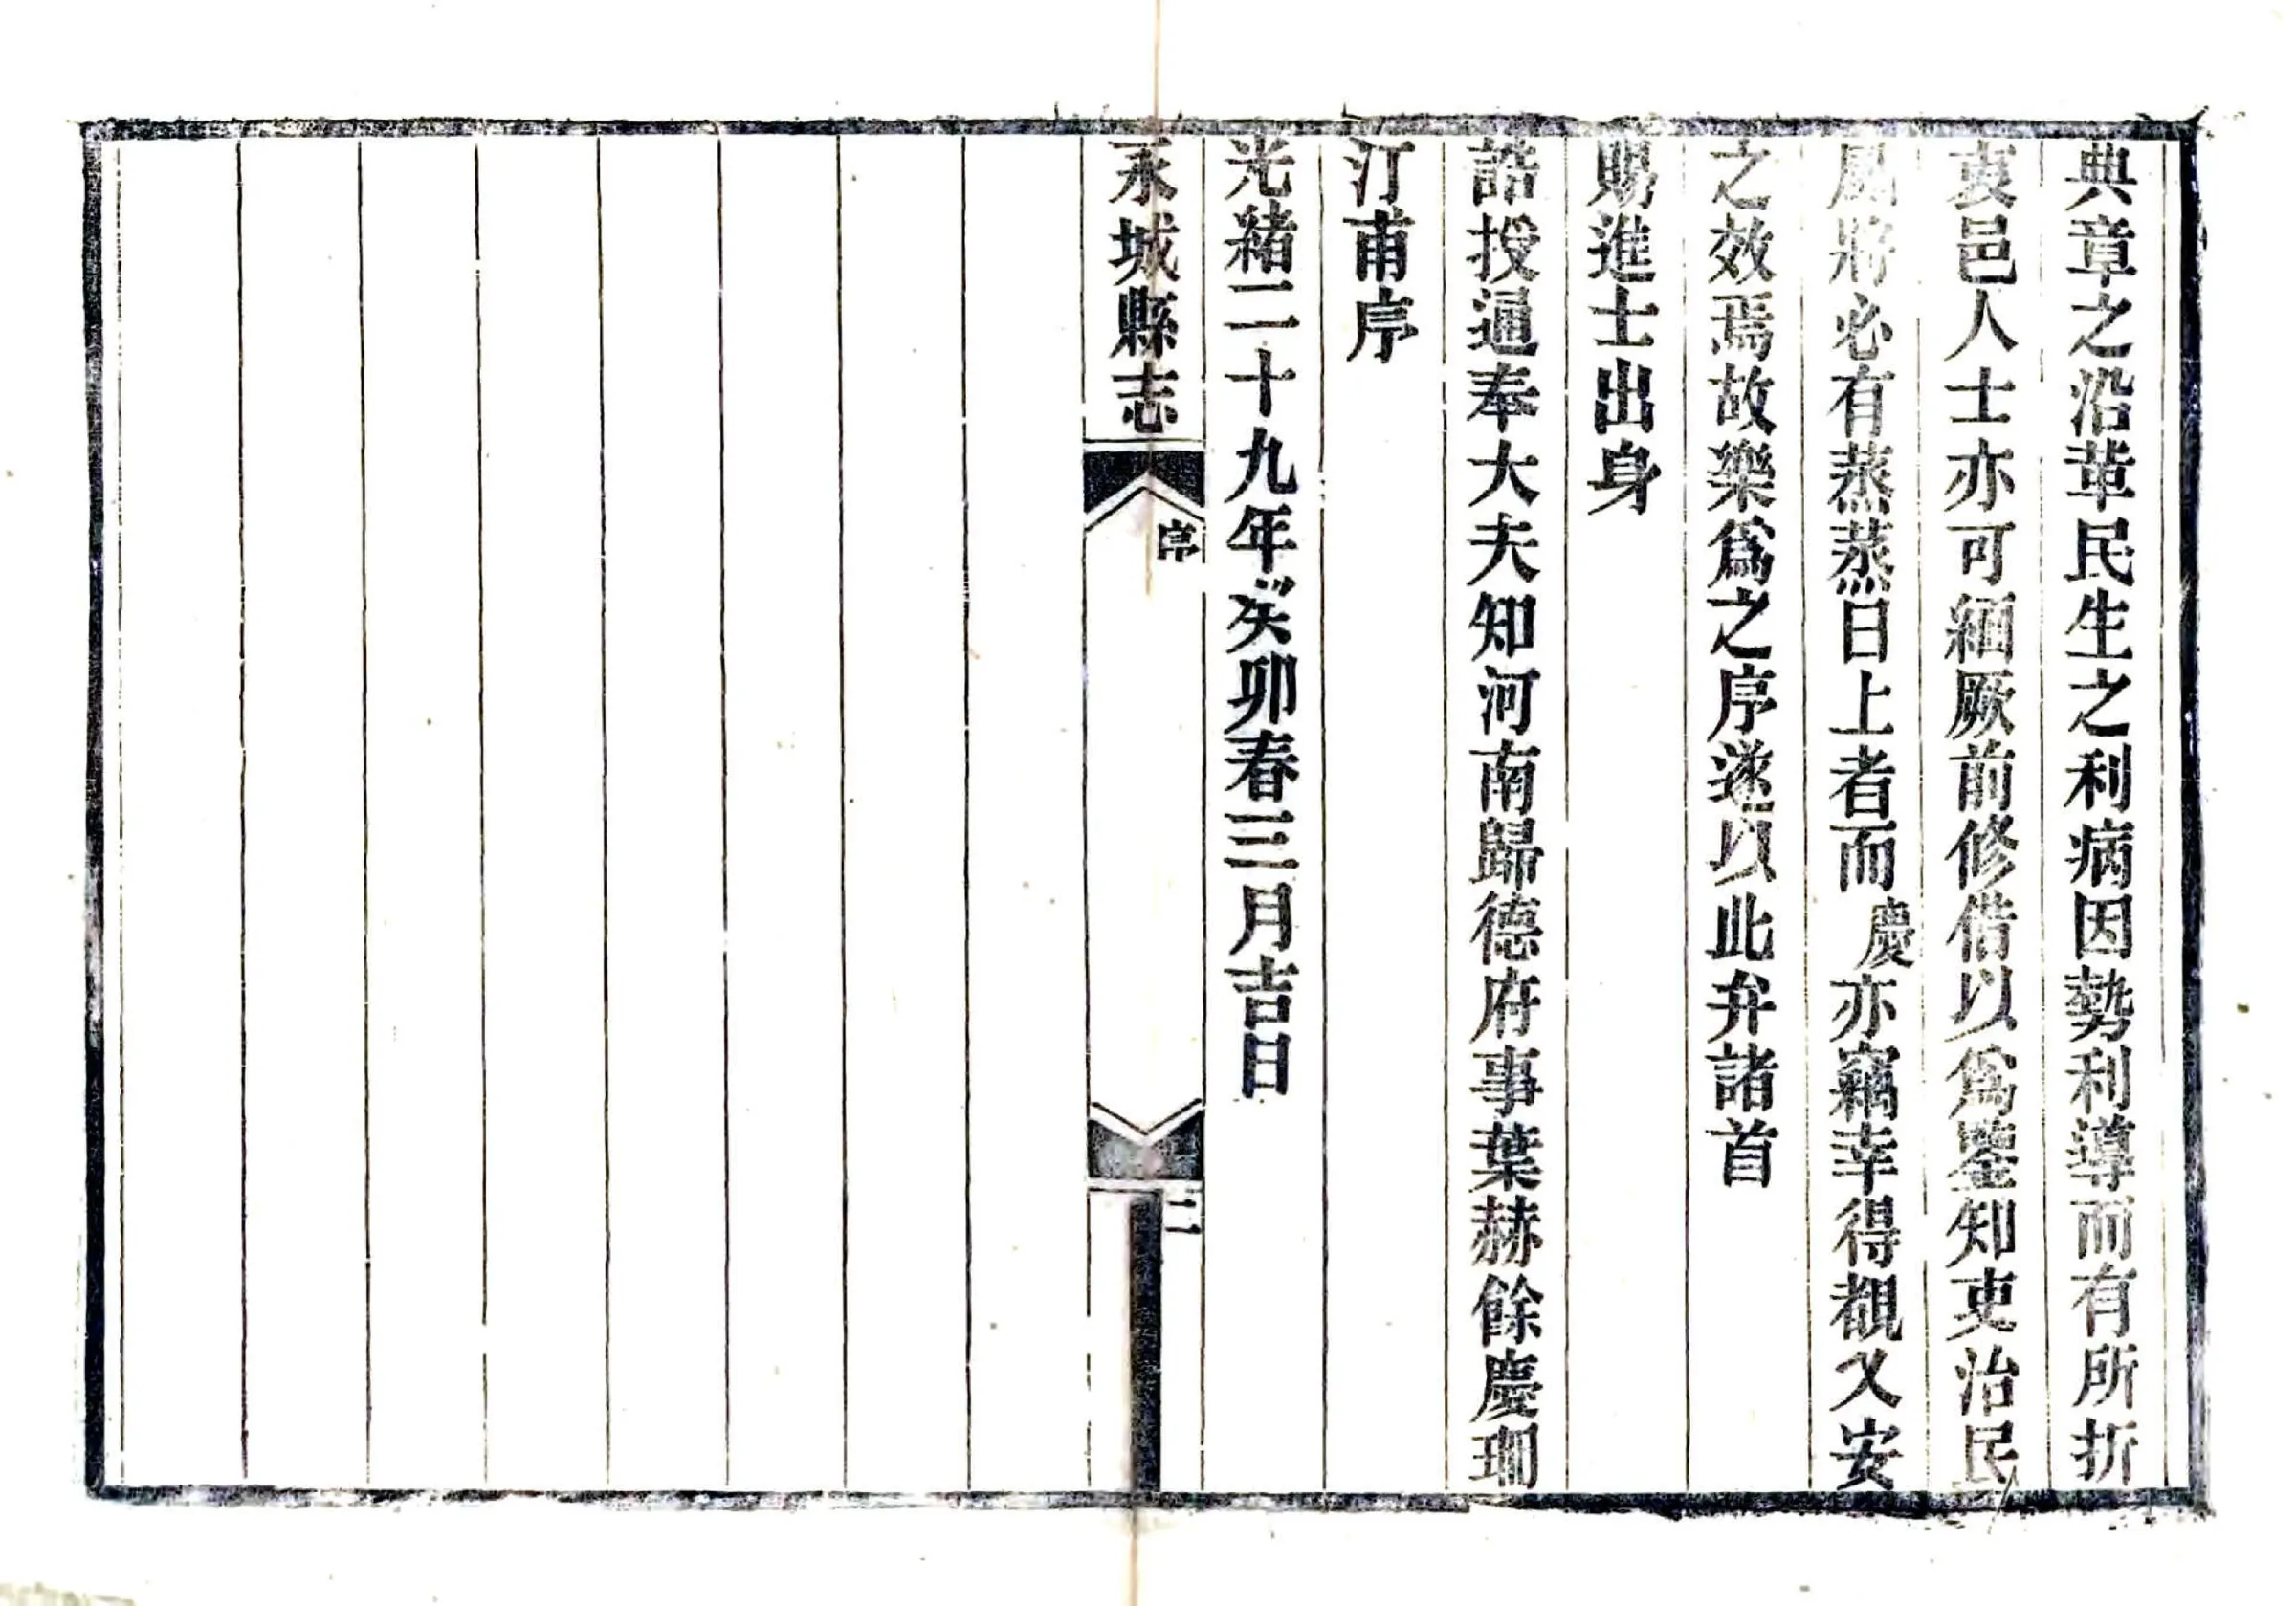 典章之沿革民生之利病因勢利導而有所折
衷邑人士亦可緬厥前修借以爲鑒知吏治民
風將必有蒸蒸日上者而慶亦竊幸得覩乂安
之效焉故樂爲之序遂以此弁諸首
賜進士出身
誥授通奉大夫知河南歸德府事葉赫餘慶珊
汀甫序
光緒二十九年癸卯春三月吉日
永城縣志
序
二